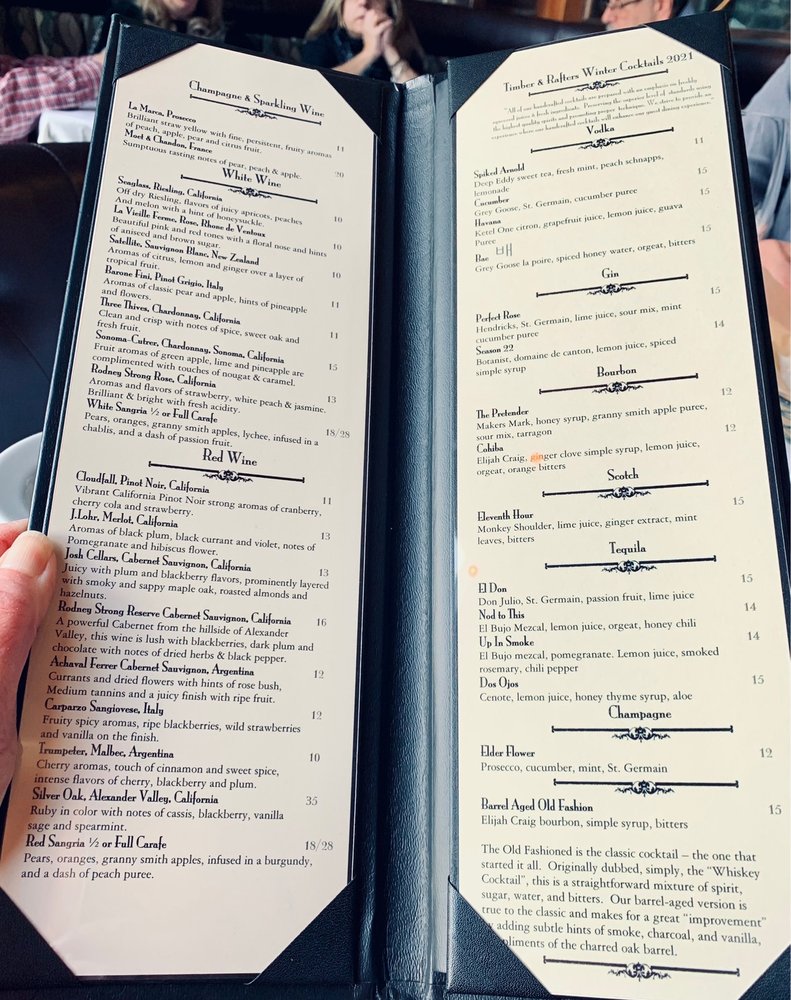 Champagne & Sparkling Wine
La Marca, Prosecco 11
Brilliant straw yellow with fine, persistent, fruity aromas
of peach, apple, pear and citrus fruit.
Moet & Chandon, France 20
Sumptuous tasting notes of pear, peach & apple.
White Wine
Seaglass, Riesling, California 10
Off dry Riesling, flavors of juicy apricots, peaches
And melon with a hint of honeysuckle.
La Vieille Ferme, Rose, Rhone de Ventoux 10
Beautiful pink and red tones with a floral nose and hints
of aniseed and brown sugar.
Satellite, Sauvignon Blanc, New Zealand 10
Aromas of citrus, lemon and ginger over a layer of
tropical fruit.
Barone Fini, Pinot Grigio, Italy 11
Aromas of classic pear and apple, hints of pineapple
and flowers.
Three Thives, Chardonnay, California 11
Clean and crisp with notes of spice, sweet oak and
fresh fruit.
Sonoma-Cutrer, Chardonnay, Sonoma, California 15
Fruit aromas of green apple, lime and pineapple are
complimented with touches of nougat & caramel.
Rodney Strong Rose, California 13
Aromas and flavors of strawberry, white peach & jasmine.
Brilliant & bright with fresh acidity.
White Sangria ½ or Full Carafe 18/28
Pears, oranges, granny smith apples, lychee, infused in a
chablis, and a dash of passion fruit.
Red Wine
Cloudfall, Pinot Noir, California 11
Vibrant California Pinot Noir strong aromas of cranberry,
cherry cola and strawberry.
J.Lohr, Merlot, California 13
Aromas of black plum, black currant and violet, notes of
Pomegranate and hibiscus flower.
Josh Cellars, Cabernet Sauvignon, California 13
Juicy with plum and blackberry flavors, prominently layered
with smoky and sappy maple oak, roasted almonds and
hazelnuts.
Rodney Strong Reserve Cabernet Sauvignon, California 16
A powerful Cabernet from the hillside of Alexander
Valley, this wine is lush with blackberries, dark plum and
chocolate with notes of dried herbs & black pepper.
Achaval Ferrer Cabernet Sauvignon, Argentina 12
Currants and dried flowers with hints of rose bush,
Medium tannins and a juicy finish with ripe fruit.
Carparzo Sangiovese, Italy 12
Fruity spicy aromas, ripe blackberries, wild strawberries
and vanilla on the finish.
Trumpeter, Malbec, Argentina 10
Cherry aromas, touch of cinnamon and sweet spice,
intense flavors of cherry, blackberry and plum.
Silver Oak, Alexander Valley, California 35
Ruby in color with notes of cassis, blackberry, vanilla
sage and spearmint.
Red Sangria ½ or Full Carafe 18/28
Pears, oranges, granny smith apples, infused in a burgundy,
and a dash of peach puree.
Timber & Rafters Winter Cocktails 2021
"All of our handcrafted cocktails are prepared with an emphasis on freshly
squeezed juices & fresh ingredients. Preserving the superior level of standards using
the highest quality spirits and promoting proper technique. We strive to provide an
experience where our handcrafted cocktails will enhance our guest dining experience."
Vodka
Spiked Arnold 11
Deep Eddy sweet tea, fresh mint, peach schnapps,
lemonade
Cucumber 15
Grey Goose, St. Germain, cucumber puree
Havana 15
Ketel One citron, grapefruit juice, lemon juice, guava
Puree
Bae 배 15
Grey Goose la poire, spiced honey water, orgeat, bitters
Gin
Perfect Rose 15
Hendricks, St. Germain, lime juice, sour mix, mint
cucumber puree
Season 22 14
Botanist, domaine de canton, lemon juice, spiced
simple syrup
Bourbon
The Pretender 12
Makers Mark, honey syrup, granny smith apple puree,
sour mix, tarragon
Cohiba 12
Elijah Craig, ginger clove simple syrup, lemon juice,
orgeat, orange bitters
Scotch
Eleventh Hour 15
Monkey Shoulder, lime juice, ginger extract, mint
leaves, bitters
Tequila
El Don 15
Don Julio, St. Germain, passion fruit, lime juice
Nod to This 14
El Bujo Mezcal, lemon juice, orgeat, honey chili
Up In Smoke 14
El Bujo mezcal, pomegranate. Lemon juice, smoked
rosemary, chili pepper
Dos Ojos 15
Cenote, lemon juice, honey thyme syrup, aloe
Champagne
Elder Flower 12
Prosecco, cucumber, mint, St. Germain
Barrel Aged Old Fashion 15
Elijah Craig bourbon, simple syrup, bitters
The Old Fashioned is the classic cocktail – the one that
started it all. Originally dubbed, simply, the "Whiskey
Cocktail", this is a straightforward mixture of spirit,
sugar, water, and bitters. Our barrel-aged version is
true to the classic and makes for a great "improvement"
adding subtle hints of smoke, charcoal, and vanilla,
of the charred oak barrel.